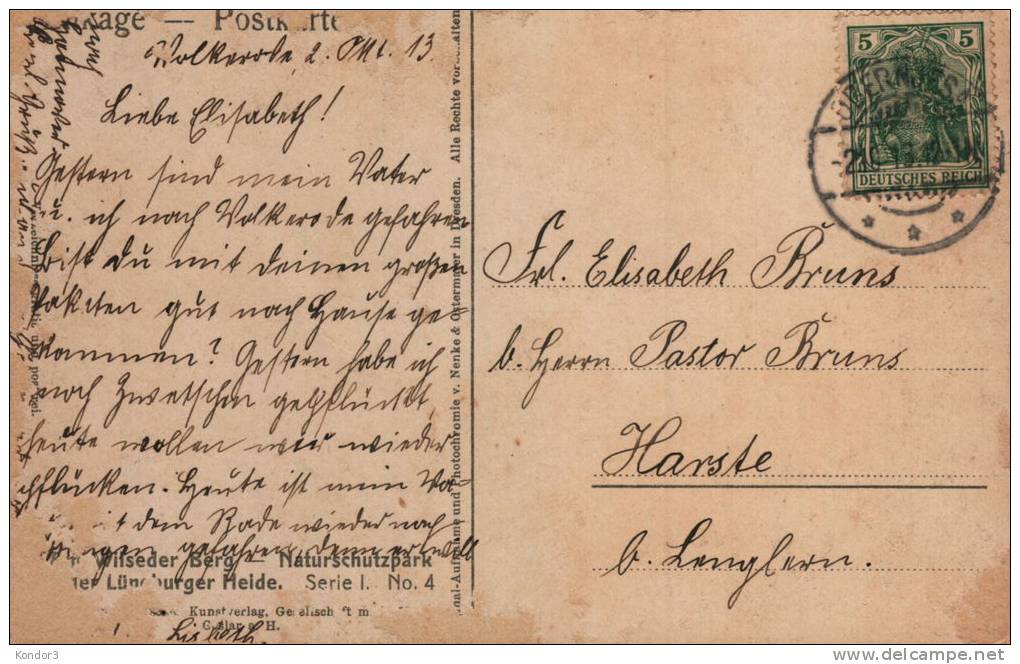 Postkarte
Volkerode, 2. Okt. 13.
Liebe Elisabeth!
Gestern sind mein Vater
u. ich nach Volkerode gefahren
Bist Du mit deinen großen
Pakkten gut nach Hause ge-
kommen? Gestern habe ich
noch Zwetschen gepflückt,
heute wollen wir wieder
pflücken. Heute ist mein Va-
mit dem Rade wieder nach
gefahren, denn er will
Wilseder Berg — Naturschutzpark
der Lüneburger Heide. Serie I. No. 4
Kunstverlag, Gesellschaft m
Lisbeth.
Original-Aufnahme und Photochromie v. Nenke & Ostermaier in Dresden. Alle Rechte vorbehalten
5 5
DEUTSCHES REICH
Frl. Elisabeth Bruns
b. Herrn Pastor Bruns
Harste
b. Lenglern.
Kondor3
http://www.delcampe.net